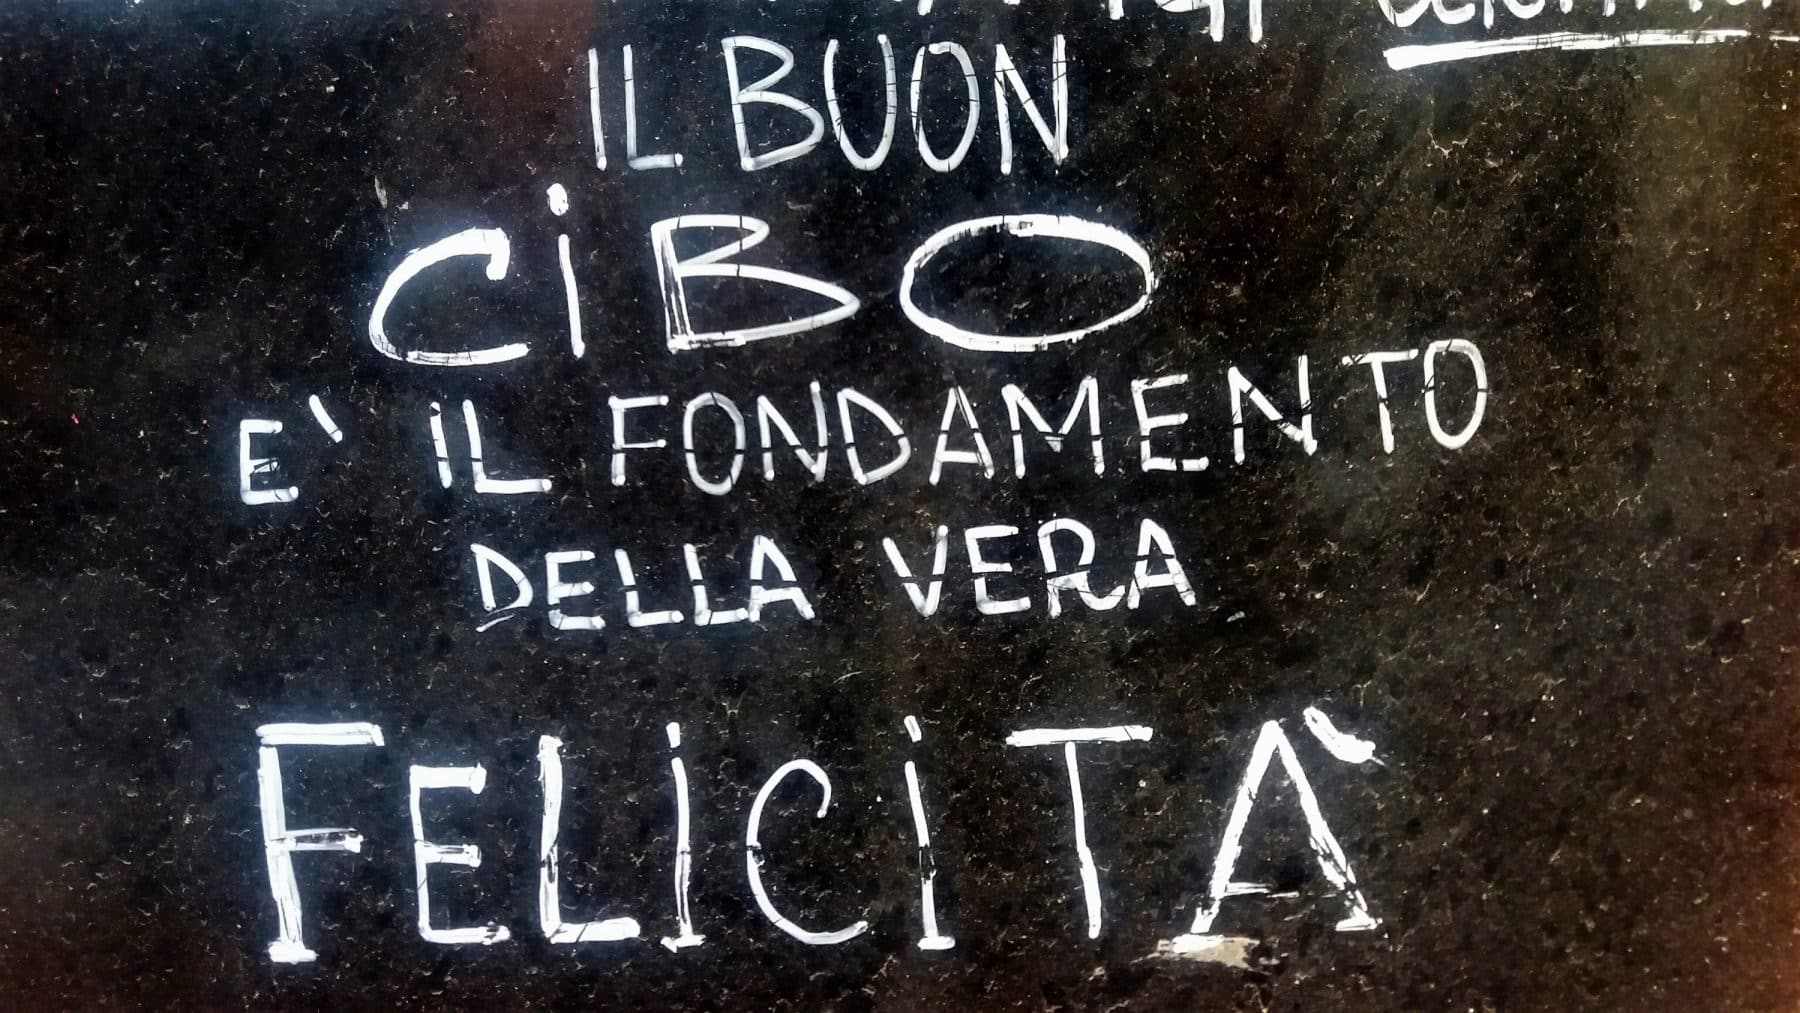 IL BUON
CiBO
E' IL FONDAMENTO
DELLA VERA
FELiCiTÀ